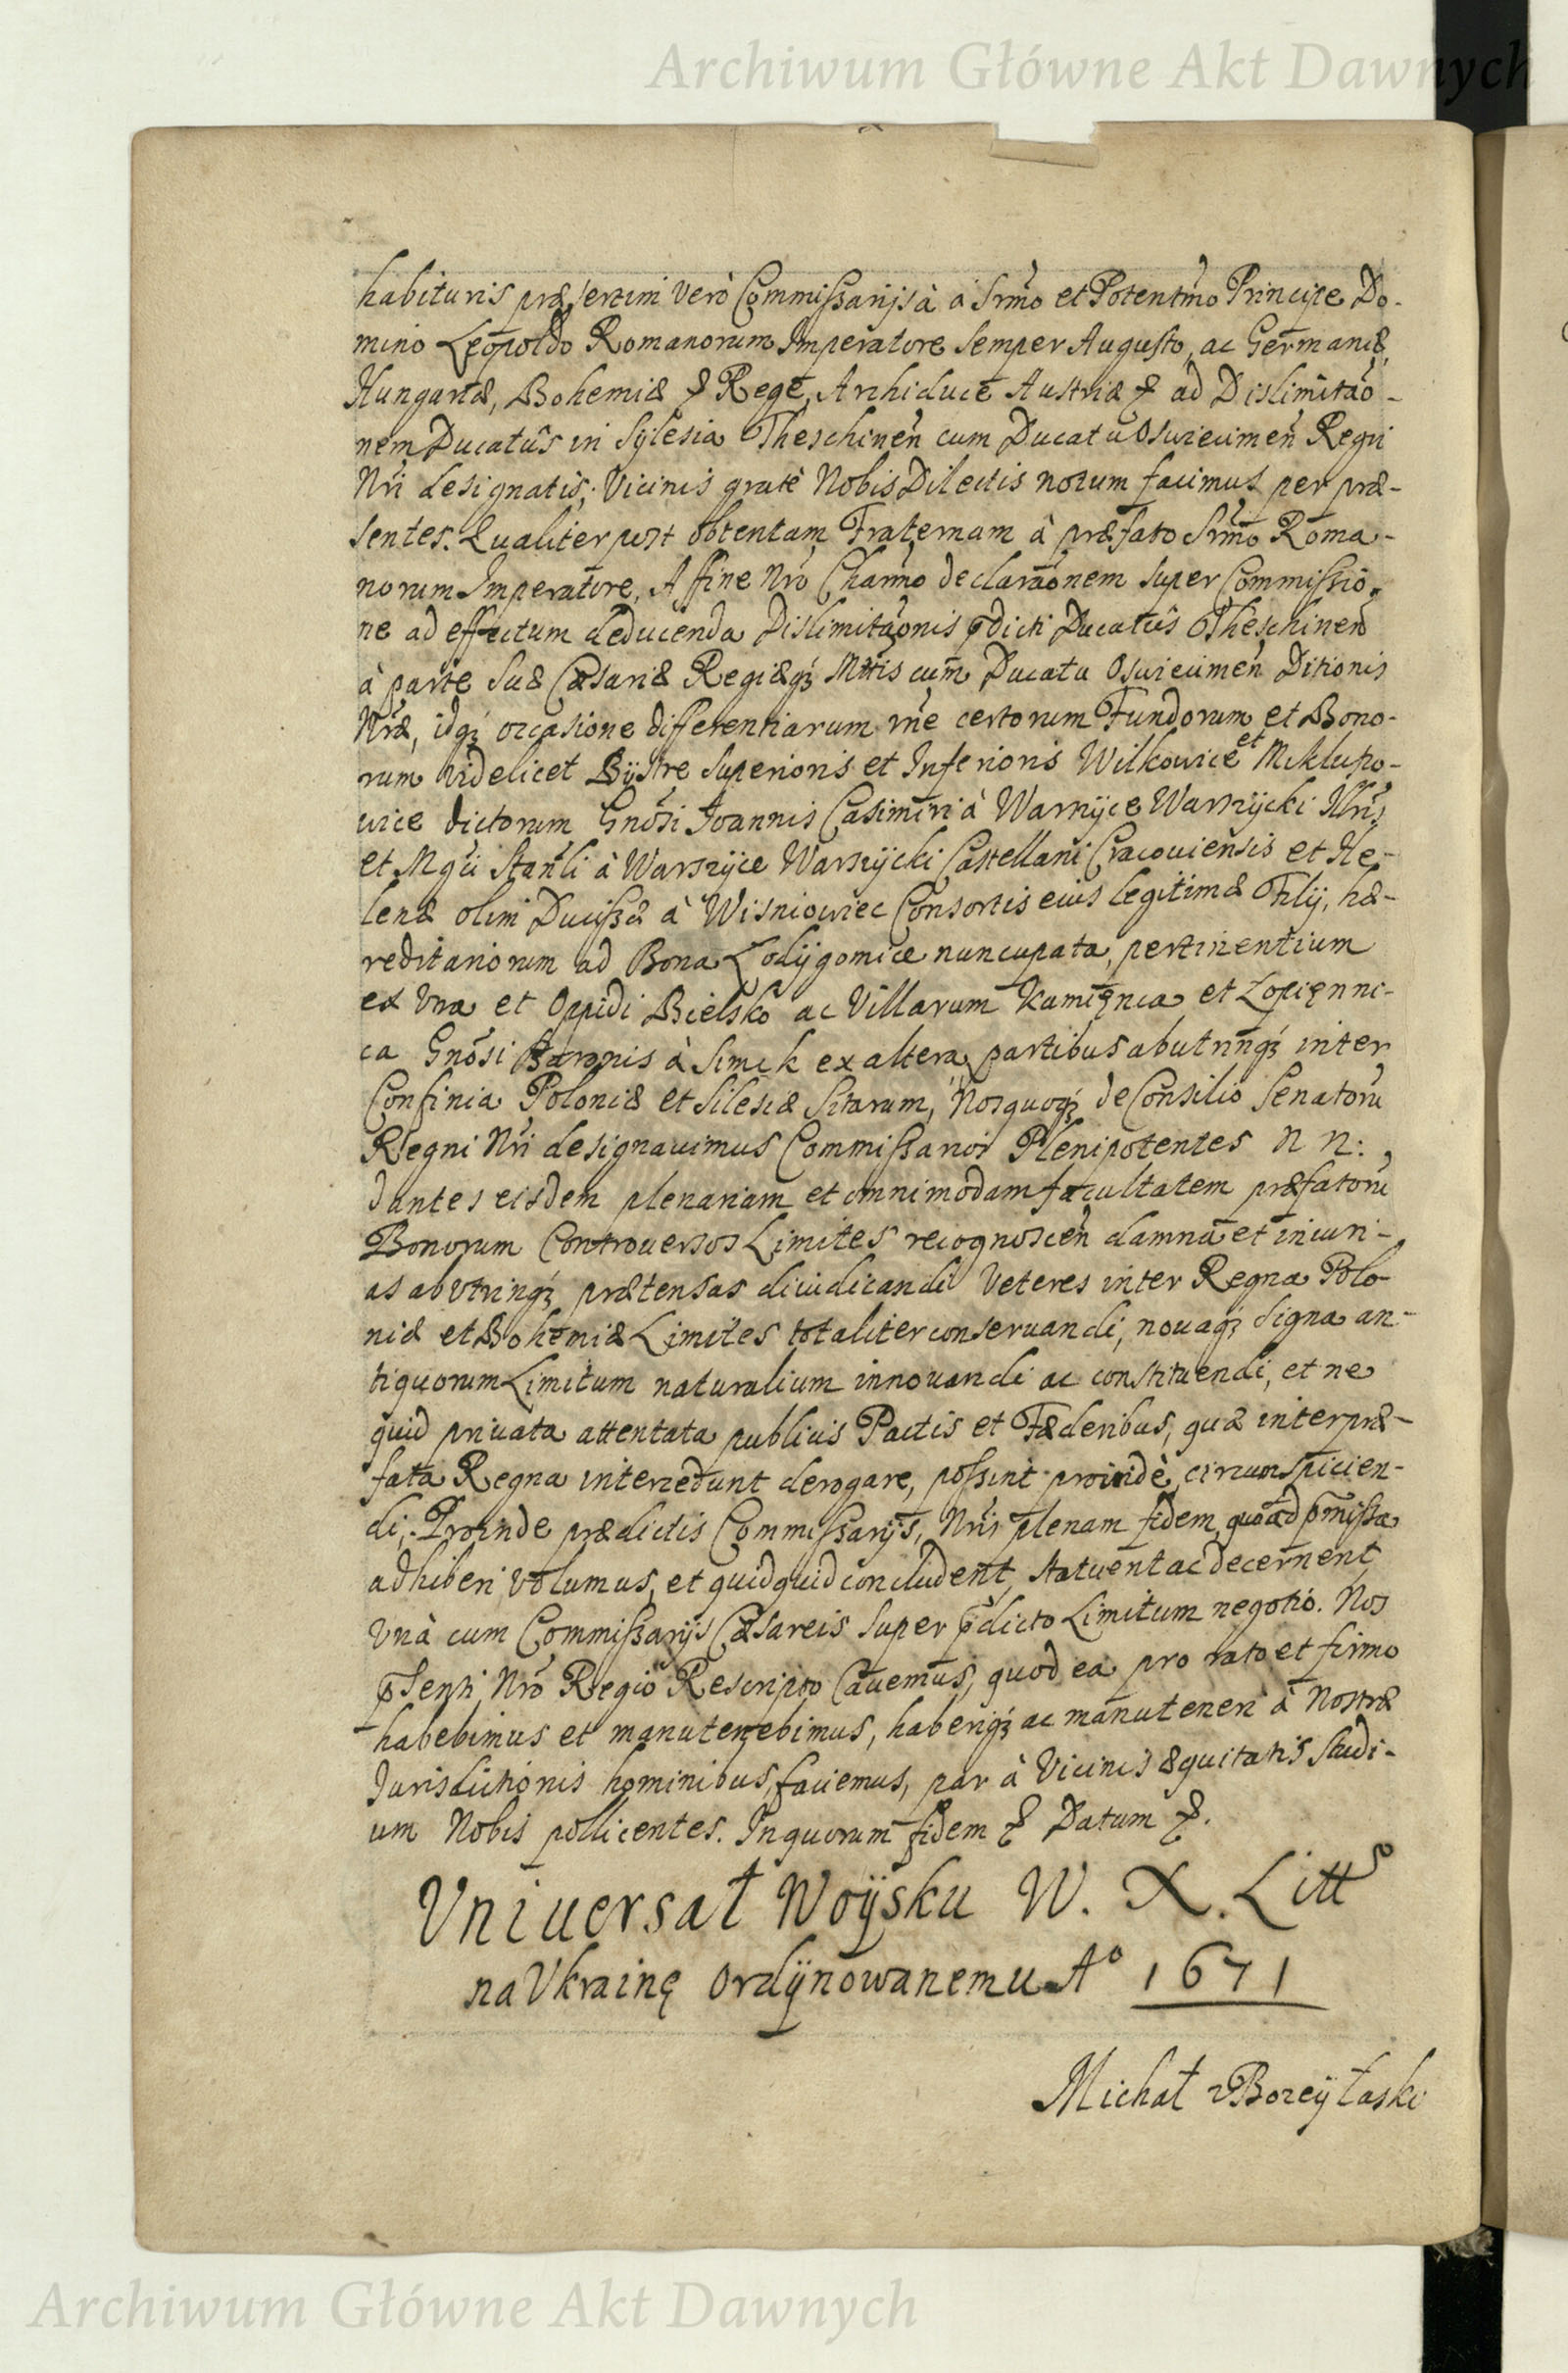 Archiwum Główne Akt Dawnych
habituris præsertim verò Commissarijs à a Srmo et Potentmo Principe Do-
mino Leopoldo Romanorum Imperatore Semper Augusto, ac Germaniæ,
Hungariæ, Bohemiæ & Rege, Archiduce Austriæ & ad Dislimitao-
nem Ducatûs in Sylesia Theschinen cum Ducatu Osuiecimen Regni
Nri designatis, Vicinis gratè Nobis Dilectis notum facimus per præ-
sentes. Qualiter post obtentam Fraternam à præfato Srmo Roma-
norum Imperatore, Affine Nro Charmo declaraonem super Commissio-
ne ad effectum deducenda Dislimitaonis pdicti Ducatûs Theschinen
à parte Suæ Cæsariæ Regiæq; Mttis cum Ducatu Osuiecimen Ditionis
Nræ, idq; occasione differentiarum rne certorum Fundorum et Bono-
rum videlicet Bÿstre Superioris et Inferioris Wilkowice et Miklupo-
wice dictorum Gnosi Joannis Casimiri à Warszÿce Warszÿcki Illris
et Mgci Stanli à Warszÿce Warszÿcki Castellani Cracouiensis et He-
lenæ olim Ducissæ à Wisniowiec Consortis eius legitimæ Filij, hæ-
reditariorum ad Bona Łodÿgowice nuncupata, pertinentium
ex Vna et Oppidi Bielsko ac Villarum Kamięnica et Łopięnni-
ca Gnosi Baronis à Sunek ex altera partibus abutrinq; inter
Confinia Poloniæ et Silesiæ Sitarum, Nosquoq; de Consilio Senatoru
Regni Nri designauimus Commissarios Plenipotentes N N:
dantes eisdem plenariam et omnimodam facultatem præfatoru
Bonorum Controuersos Limites recognoscen damna et iniuri-
as ab vtrinq; prætensas diiudicandi Veteres inter Regna Polo-
niæ et Bohemiæ Limites totaliter conseruandi, nouaq; signa an-
tiquorum Limitum naturalium innouandi ac constituendi, et ne
quid priuata attentata publicis Pactis et Fæderibus, quæ inter præ-
fata Regna intercedunt derogare, possint proindè, circumspicien-
di; Proinde prædictis Commissarijs, Nris plenam fidem quoad pmissa
adhiberi volumus, et quidquid concludent, Statuent ac decernent
Vnà cum Commissarijs Cæsareis Super pdicto Limitum negotio. Nos
pSenti Nro Regio Rescripto Cauemus, quod ea pro rato et firmo
habebimus et manutenebimus, haberiq; ac manuteneri à Nostræ
Jurisdictionis hominibus, faciemus, par à Vicinis æquitatis Studi-
um Nobis pollicentes. In quorum fidem & Datum &.
Vniuersał Woÿsku W. X. Litto
na Vkrainę ordÿnowanemu Ao 1671
Michał Borcÿłaski
Archiwum Główne Akt Dawnych